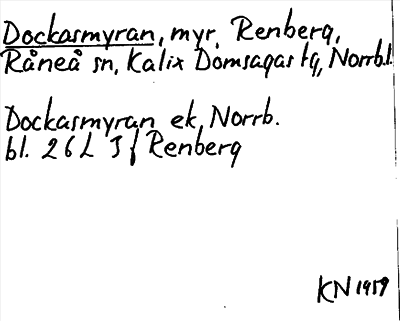 Dockasmyran, myr, Renberg,
Råneå sn, Kalix Domsagas tg, Norrb.l.
Dockasmyran ek, Norrb.
bl. 26 L 3 f Renberg
KN 1959